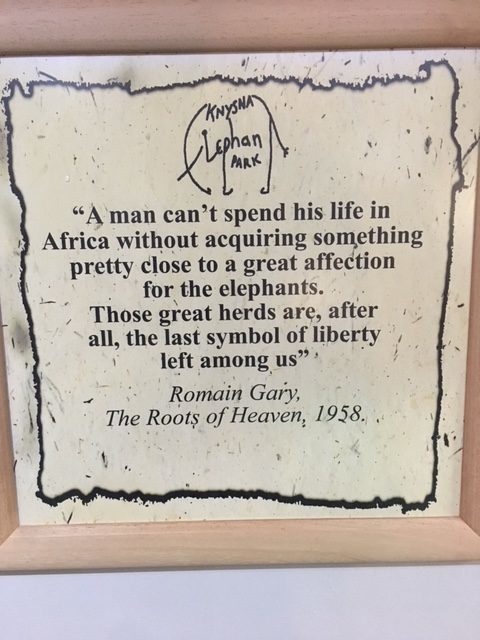 KNYSNA
Elephan
PARK
“A man can’t spend his life in
Africa without acquiring something
pretty close to a great affection
for the elephants.
Those great herds are, after
all, the last symbol of liberty
left among us”
Romain Gary,
The Roots of Heaven, 1958.